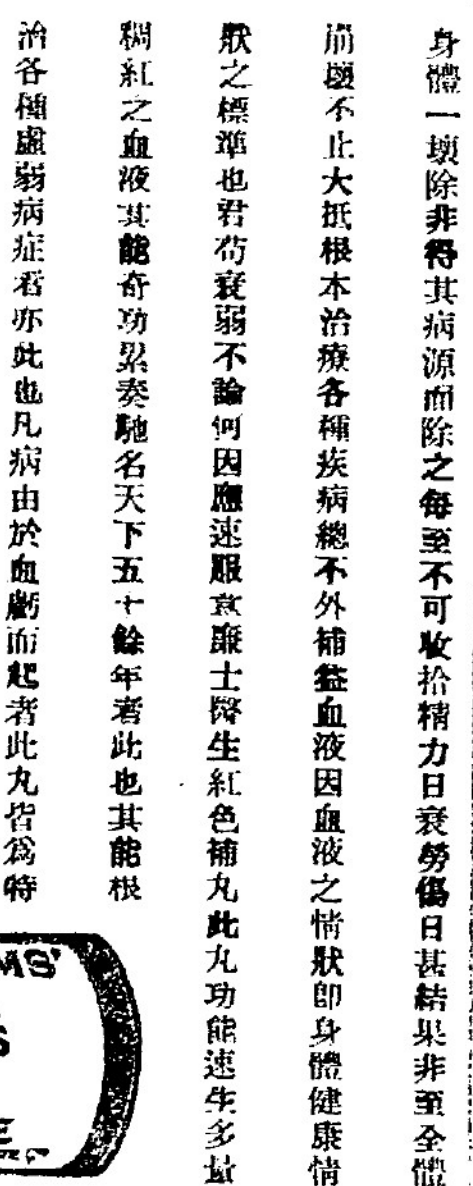 身體一壞除非得其病源而除之每至不可收拾精力日衰勞傷日甚結果非至全體
崩壞不止大抵根本治療各種疾病總不外補益血液因血液之情狀卽身體健康情
狀之標準也君苟衰弱不論何因應速服韋廉士醫生紅色補丸此丸功能速生多量
稠紅之血液其能奇功累奏馳名天下五十餘年者此也其能根
治各種虛弱病症者亦此也凡病由於血虧而起者此丸皆爲特
MS'
S
E